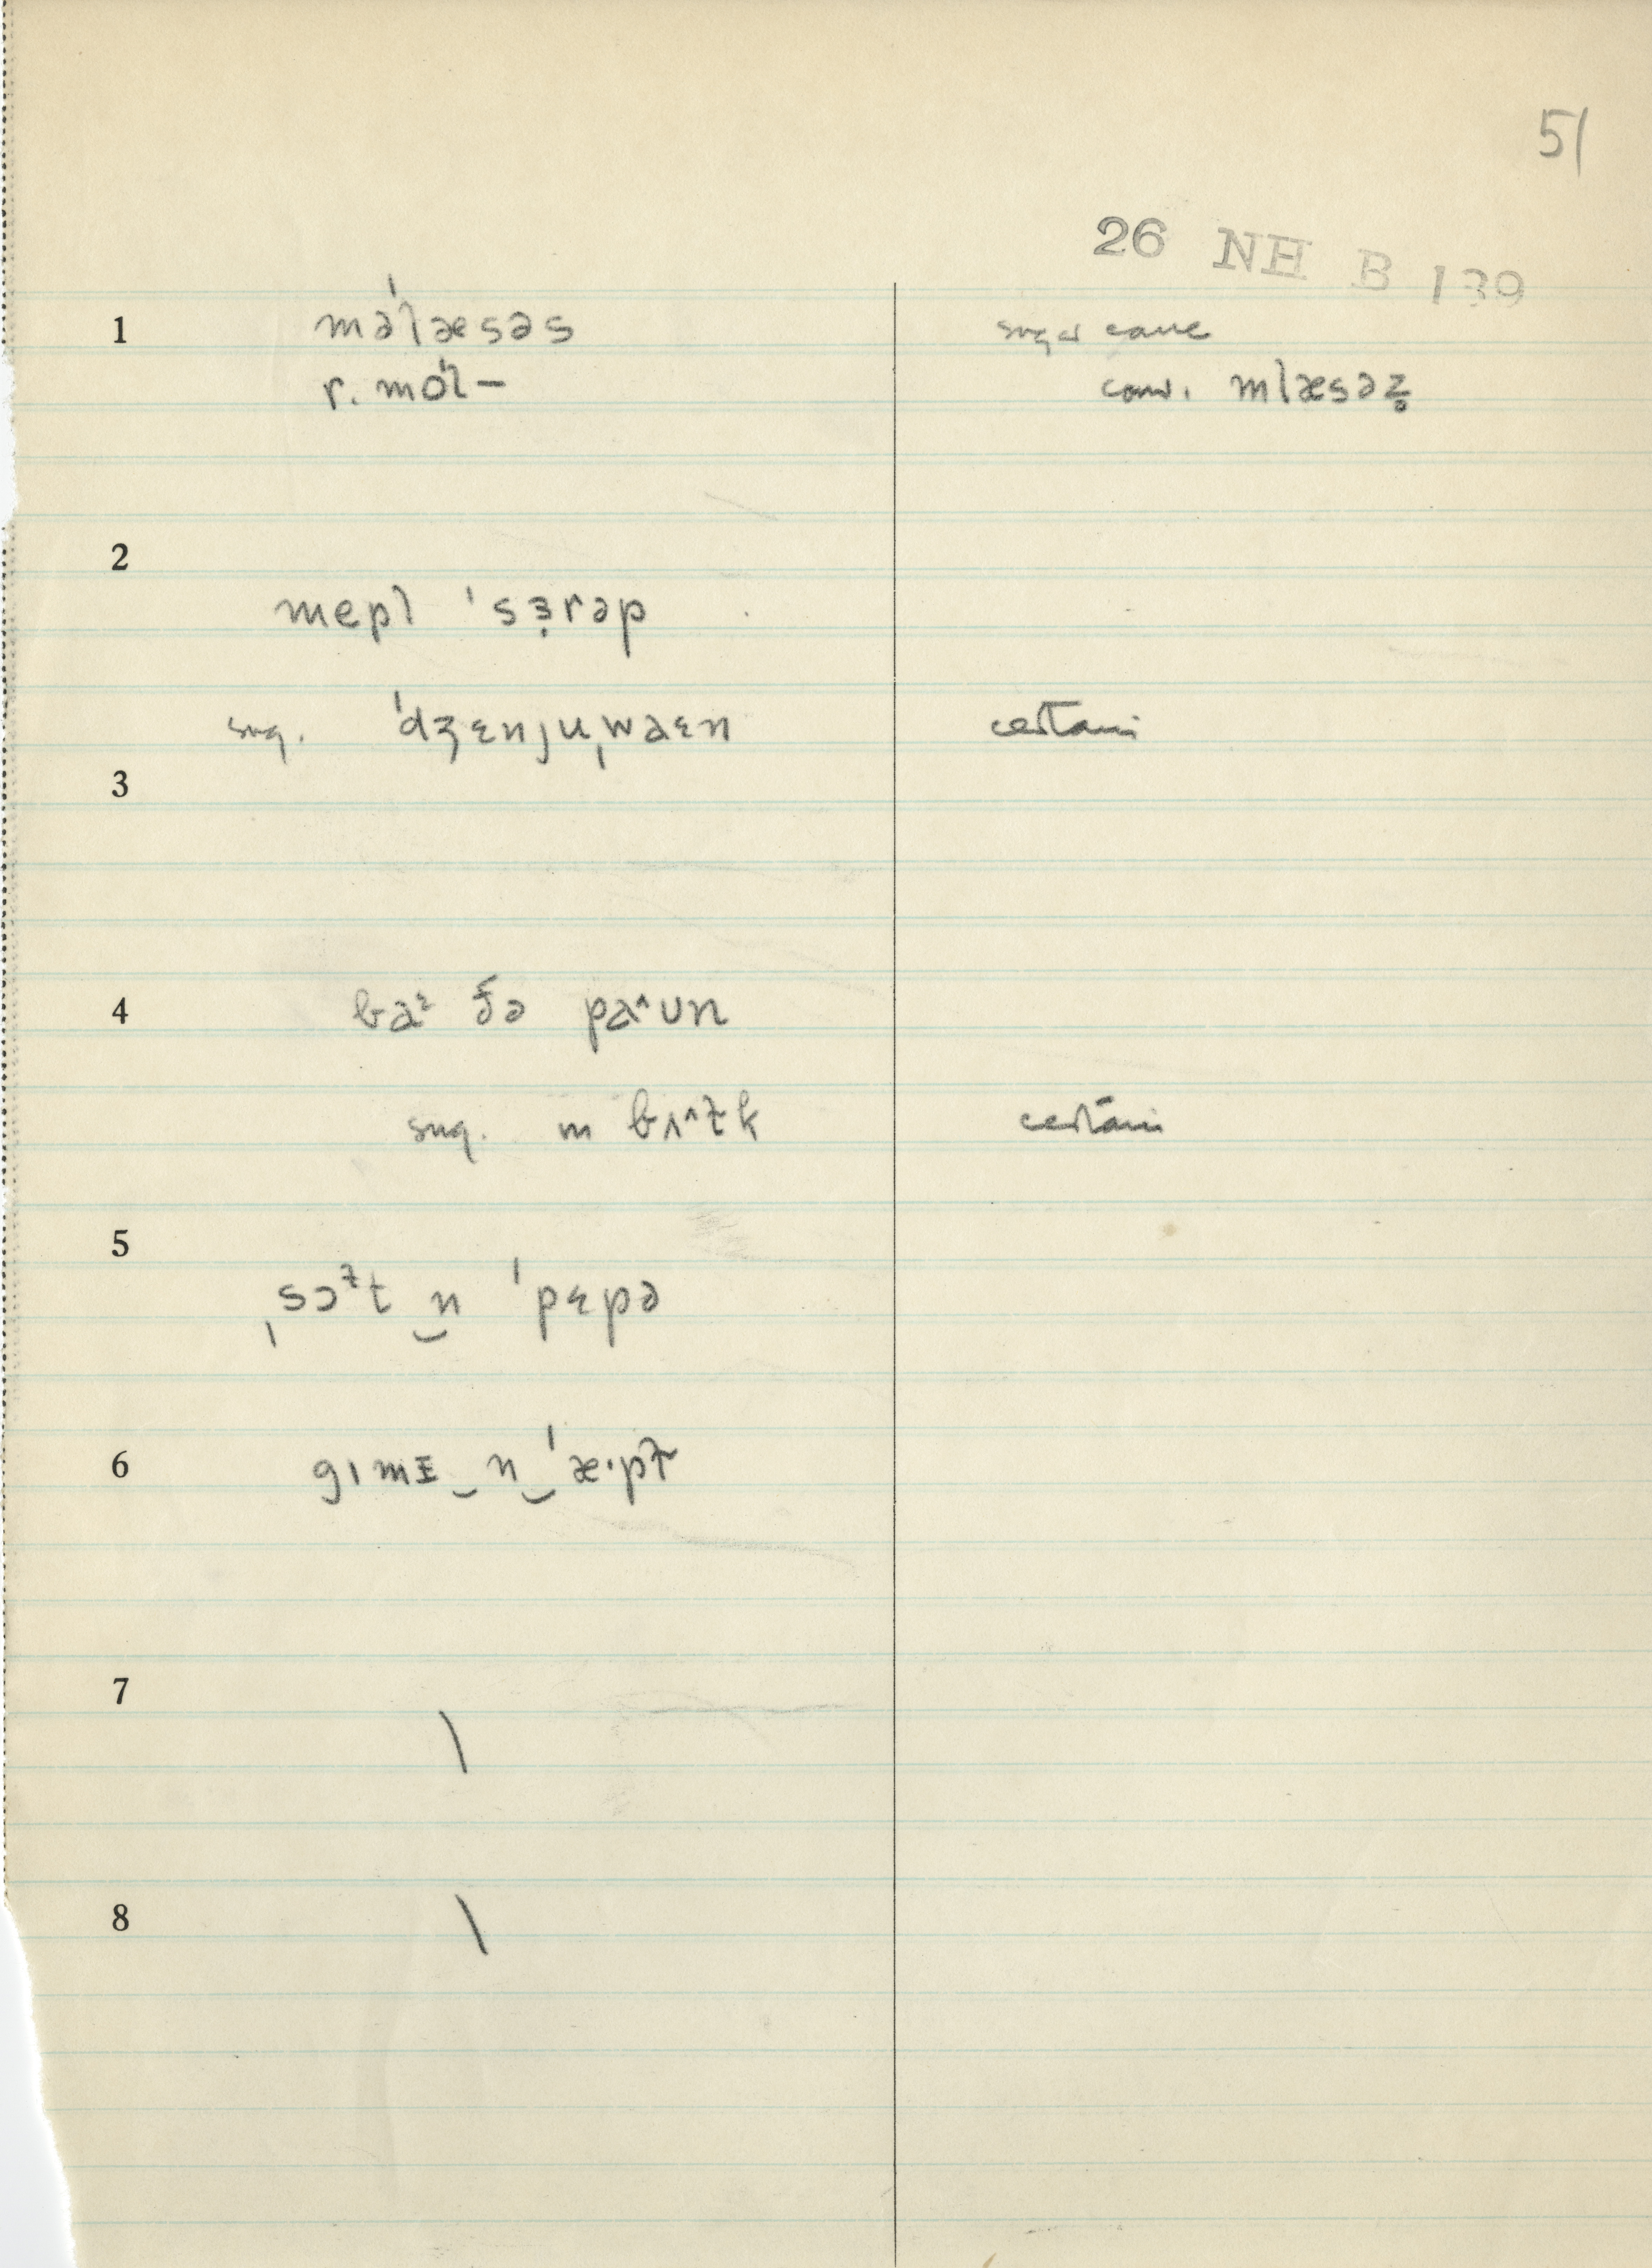 51
26 NH B 139
1 məˈlæsəs sugar cane
r. mól– conv. mlæsəz̥
2
mepl ˈsɜ̣rəp
sug. ˈdʒɛnjuˌwaɛn certain
3
4 baᶻ ðə paˆun
sug. m bʌˆƚk certain
5
ˌsɔᵗ̴t ‿n ˈpɛpə
6 gɪmɪ‿n‿ˈæ·pƚ
7
\
8 \